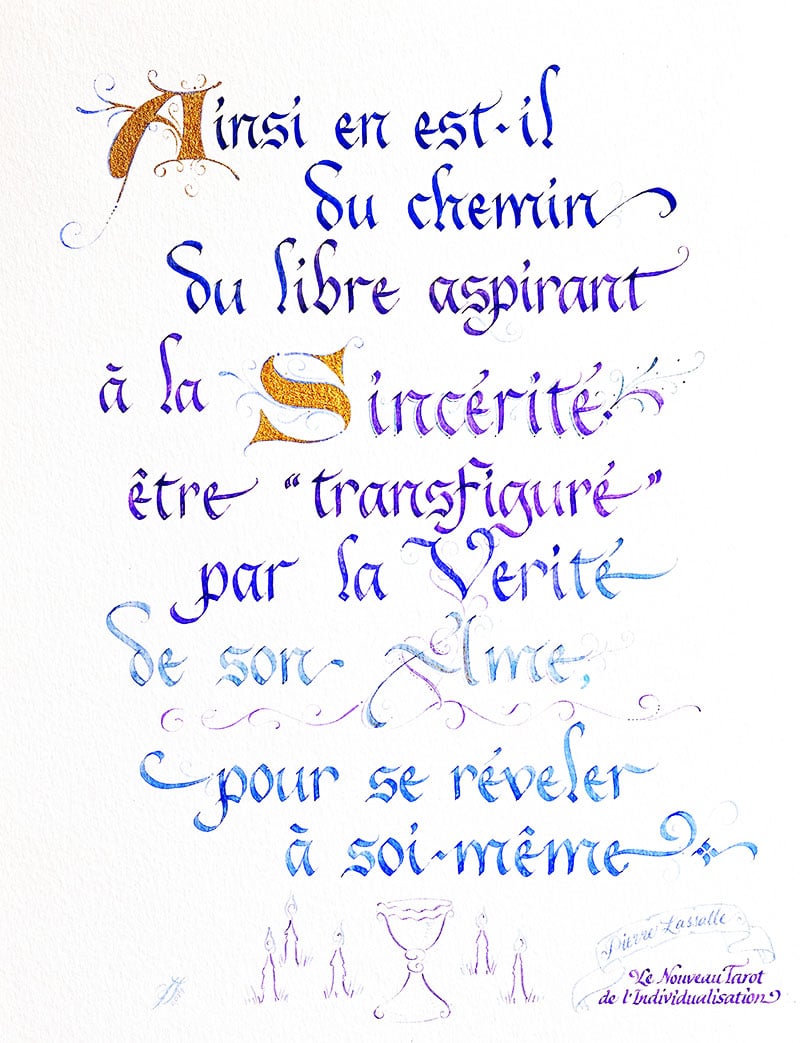 Ainsi en est-il
du chemin
du libre aspirant
à la Sincérité:
être "transfiguré"
par la Verité
de son Âme,
pour se réveler
à soi-même
Pierre Lassalle
Le Nouveau Tarot
de l'Individualisation